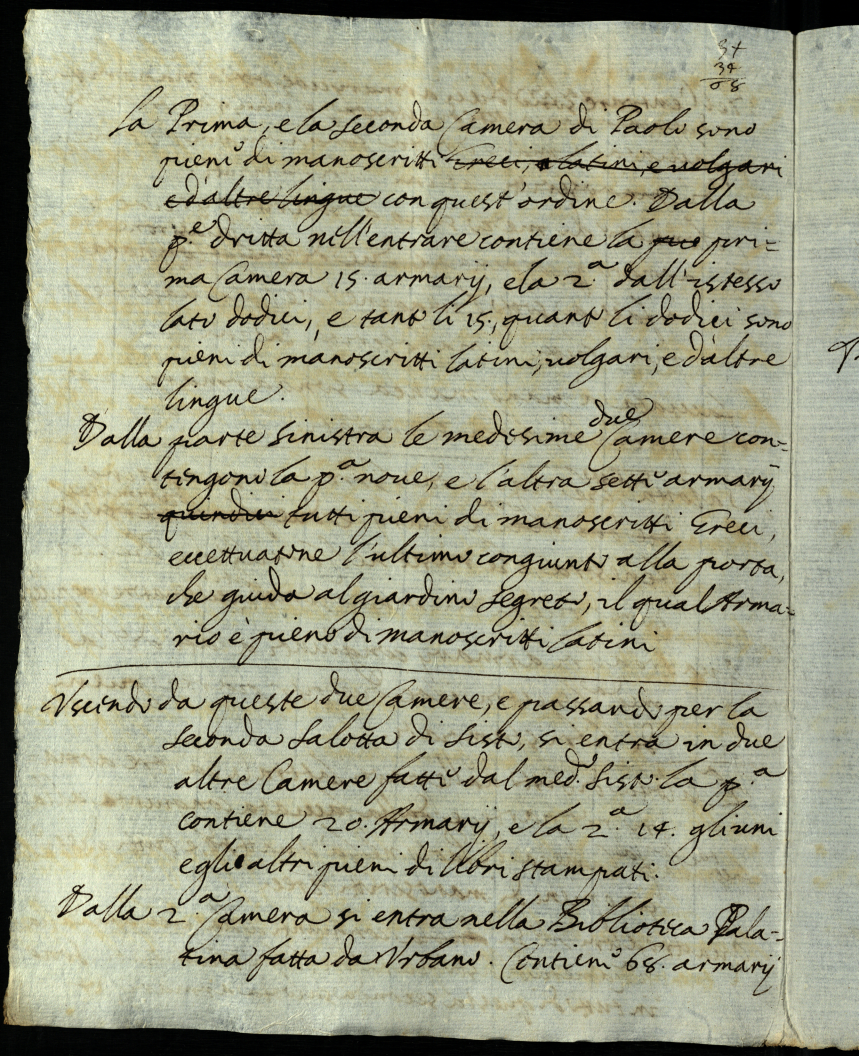 34
34
68
La Prima, e la seconda Camera di Paolo sono
pieni di manoscritti Greci, e latini, e volgari
e d'altre lingue con quest'ordine. Dalla
p.e dritta nell'entrare contiene la pri=
ma Camera 15. armarij, e la 2.a dall'istesso
lato dodici, e tanto li 15, quanto li dodici sono
pieni di manoscritti latini, volgari, e d'altre
lingue.
Dalla parte sinistra le medesime due Camere con=
tengono la p.a nove, e l'altra setti armarij
quindici tutti pieni di manoscritti Greci,
eccettuatone l'ultimo congiunto alla porta,
che guida al giardino segreto, il qual Arma=
rio è pieno di manoscritti latini
Uscendo da queste due Camere, e passando per la
seconda Salotta di Sisto, si entra in due
altre Camere fatte dal med.o Sisto. la p.a
contiene 20. Armarij, e la 2.a 14. gli uni
e gli altri pieni di libri stampati.
Dalla 2.a Camera si entra nella Biblioteca Pala=
tina fatta da Urbano. Contiene 68. armarij